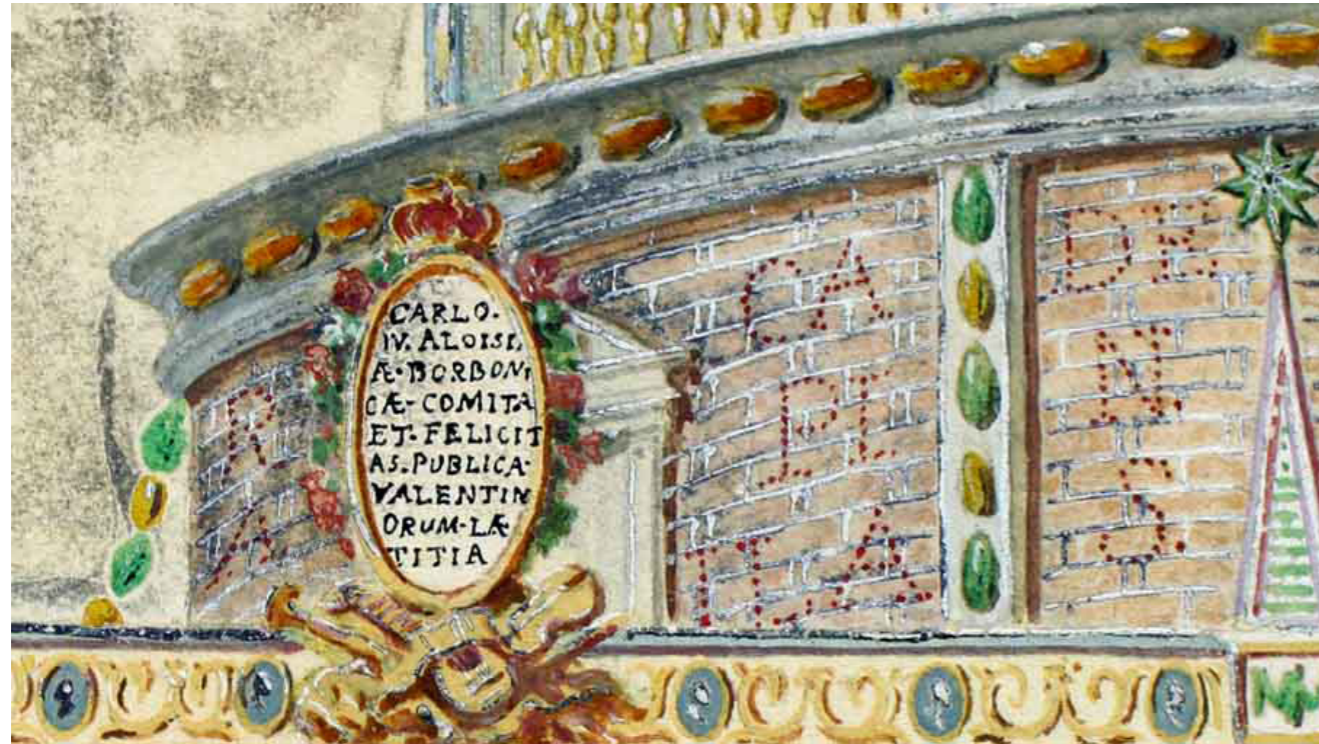 R
A
CARLO.
IV. ALOISI,
Æ·BORBONI
CÆ-COMITA
ET·FELICIT
AS.PUBLICA·
VALENTIN
ORUM·LÆ·
TITIA
CA
DE
N